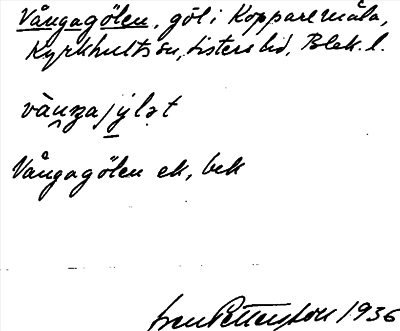 Vångagölen, göl i Kopparemåla,
Kyrkhults sn, Listers hd, Blek. l.
Vångagölen ek, bek
1936